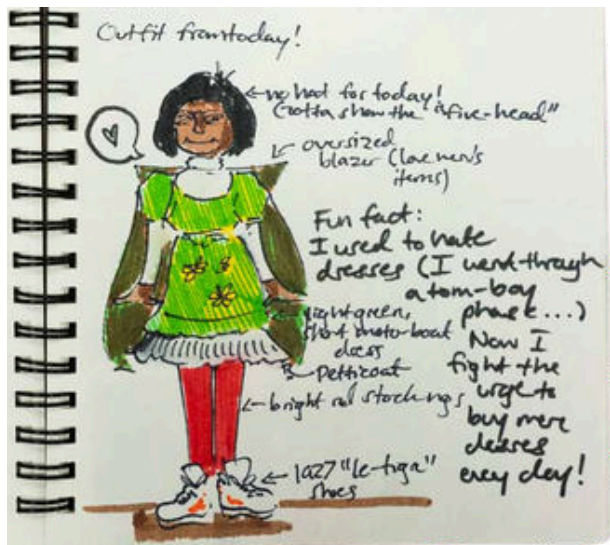 Outfit from today!
no hat for today!
Gotta show the "five-head"
oversized
blazer (love men's
items)
Fun fact:
I used to hate
dresses (I went through
a tom-boy
phase...)
Now I
fight the
urge to
buy more
dresses
every day!
light green,
short
dress
petticoat
bright red stockings
"le-tigr"
shoes